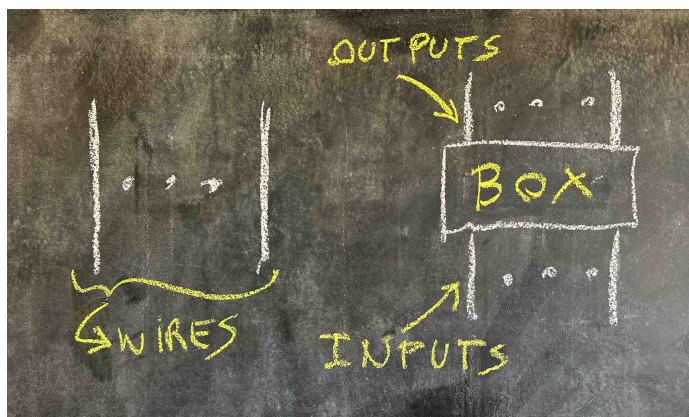 OUTPUTS
BOX
WIRES
INPUTS